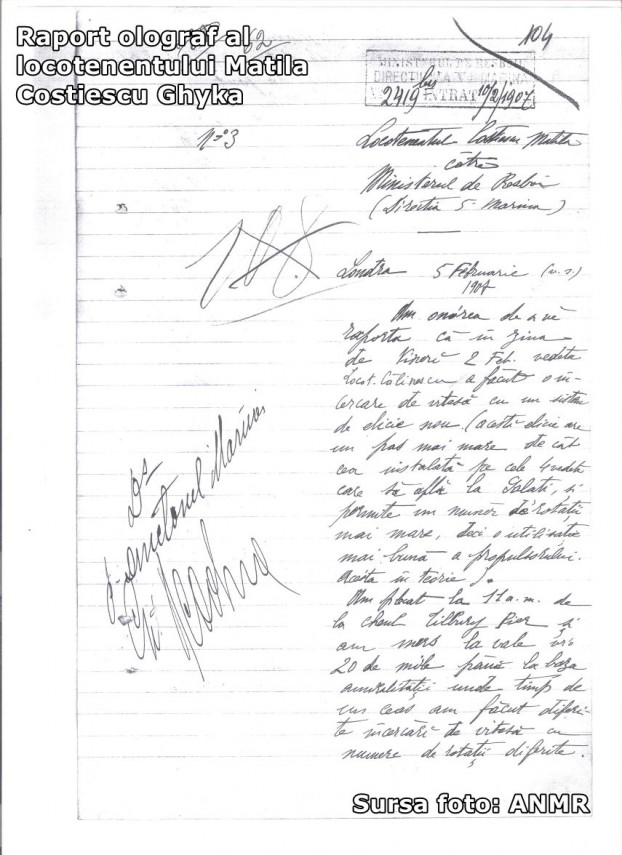 Raport olograf al
locotenentului Matila
Costiescu Ghyka
104
MINISTERUL DE RESBEL
DIRECTIA V MARINA
2419 INTRAT 10/2/1907
No 3
Locotenentul Matila
către
Ministerul de Resboiu
(Directia 5a Marina)
Londra 5 Februarie (n. s.)
1907
Am onórea de a vĕ
raporta că în ziua
de Vineri 2 Feb. vedeta
Locot. Călinescu a făcut o în-
cercare de vitesă cu un sistem
de elicie nou. (acestă elicie are
un pas mai mare de cât
cea instalată pe cele 4 vedete
care să află la Galati, si
permite un numĕr de rotații
mai mare, deci o utilisatie
mai bună a propulsorului.
acesta în teorie).
Am plecat la 11 a.m. de
la cheul Tilbury Pier si
am mers la vale
20 de mile până la baza
amiralităței unde timp de
un ceas am făcut diferi-
te încercări de vitesă cu
numere de rotații diferite.
Ds
Directorul Marinei
Sursa foto: ANMR